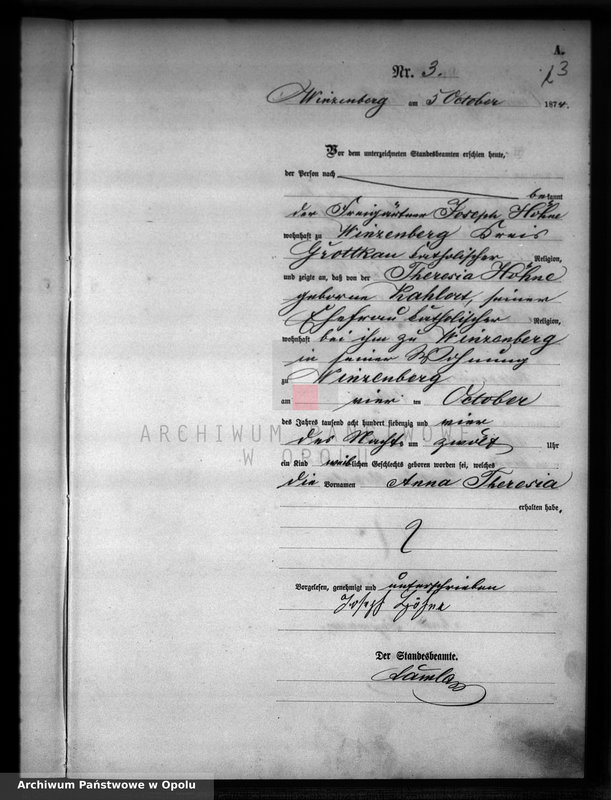 A.
Nr. 3.
13
Winzenberg am 5 October 1874.
Vor dem unterzeichneten Standesbeamten erschien heute,
der Person nach
bekannt
der Freigärtner Joseph Höhne
wohnhaft zu Winzenberg Kreis
Grottkau katholischer Religion,
und zeigte an, daß von der Theresia Höhne
geborne Kahlert, seiner
Ehefrau katholischer Religion,
wohnhaft bei ihm zu Winzenberg
in seiner Wohnung
zu Winzenberg
am vier ten October
des Jahres tausend acht hundert siebenzig und vier
des Nachts um zwölf Uhr
ein Kind weiblichen Geschlechts geboren worden sei, welches
die Vornamen Anna Theresia
erhalten habe,
Vorgelesen, genehmigt und unterschrieben
Joseph Höhne
Der Standesbeamte.
ARCHIWUM PAŃSTWOWE
W OPOLU
Archiwum Państwowe w Opolu